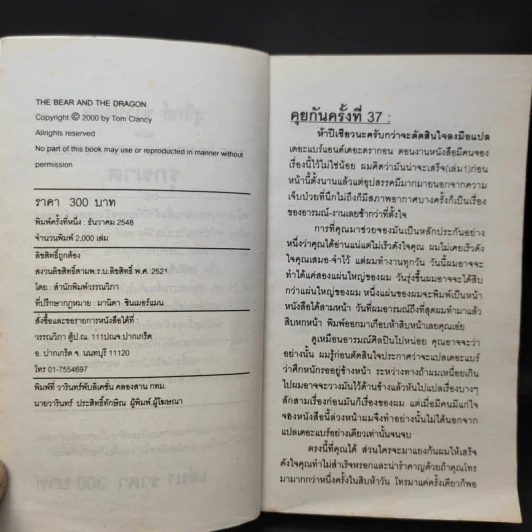 THE BEAR AND THE DRAGON
Copyright © 2000 by Tom Clancy
Allrights reserved
No part of this book may use or reproducted in manner without
permission
ราคา 300 บาท
พิมพ์ครั้งที่หนึ่ง : ธันวาคม 2548
จำนวนพิมพ์ 2,000 เล่ม
ลิขสิทธิ์ถูกต้อง
สงวนลิขสิทธิ์ตามพ.ร.บ.ลิขสิทธิ์ พ.ศ. 2521
โดย : สำนักพิมพ์วรรณวิภา
ที่ปรึกษากฎหมาย : มานิดา ซินเมอร์แมน
สั่งซื้อและขอรายการหนังสือได้ที่ :
วรรณวิภา ตู้ ปณ. 111ปณจ.ปากเกร็ด
อ. ปากเกร็ด จ. นนทบุรี 11120
โทร 01-7554697
พิมพ์ที่ วารินทร์พับลิเคชั่น คลองสาน กทม.
นายวารินทร์ ประสิทธิ์ทักษิณ ผู้พิมพ์,ผู้โฆษณา
คุยกันครั้งที่ 37 :
ห้าปีเชียวนะครับกว่าจะตัดสินใจลงมือแปล
เดอะแบร์แอนด์เดอะดรากอน ตอนงานหนังสือมีคนจอง
เรื่องนี้ไว้ไม่ใช่น้อย ผมคิดว่ามันน่าจะเสร็จ(เล่ม1)ก่อน
หน้านี้ตั้งนานแล้วแต่อุปสรรคมีมากมายนอกจากความ
เจ็บป่วยที่นึกไม่ถึงก็มีสภาพอากาศบางครั้งก็เป็นเรื่อง
ของอารมณ์-งานเลยช้ากว่าที่ตั้งใจ
การที่คุณมาช่วยจองมันเป็นหลักประกันอย่าง
หนึ่งว่าคุณได้อ่านแน่แต่ไม่เร็วดังใจคุณ ผมไม่เคยเร็วดัง
ใจคุณเสมอ-จำไว้ แต่ผมทำงานทุกวัน วันนี้ผมอาจจะ
ทำได้แค่สองแผ่นใหญ่ของผม วันรุ่งขึ้นผมอาจจะได้สิบ
กว่าแผ่นใหญ่ของผม หนึ่งแผ่นของผมจะพิมพ์เป็นหน้า
หนังสือได้สามหน้า วันที่ผมอารมณ์ดีถึงที่สุดผมทำมาแล้ว
สิบหกหน้า พิมพ์ออกมาเกือบห้าสิบหน้าเลยคุณเอ๋ย
ดูเหมือนอารมณ์ศิลปินไปหน่อย คุณอาจจะว่า
อย่างนั้น ผมรู้ก่อนตัดสินใจประกาศว่าจะแปลเดอะแบร์
ว่าศึกหนักรออยู่ข้างหน้า ระหว่างทางถ้าผมเหนื่อยเกิน
ไปผมอาจจะวางมันไว้ด้านข้างแล้วหันไปแปลเรื่องบางๆ
สักสามเรื่องก่อนมันก็เรื่องของผม แต่เมื่อมีคนมีแก่ใจ
จองหนังสือนี้ล่วงหน้าผมจึงทำอย่างนั้นไม่ได้นอกจาก
แปลเดอะแบร์อย่างเดียวเท่านั้นจนจบ
ตรงนี้ที่คุณได้ ส่วนใครจะมาแยงก้นผมให้เสร็จ
ดังใจคุณทำไม่สำเร็จหรอกและน่ารำคาญด้วยถ้าคุณโทร
มามากกว่าหนึ่งครั้งในสิบห้าวัน โทรมาแค่ครั้งเดียวก็พอ